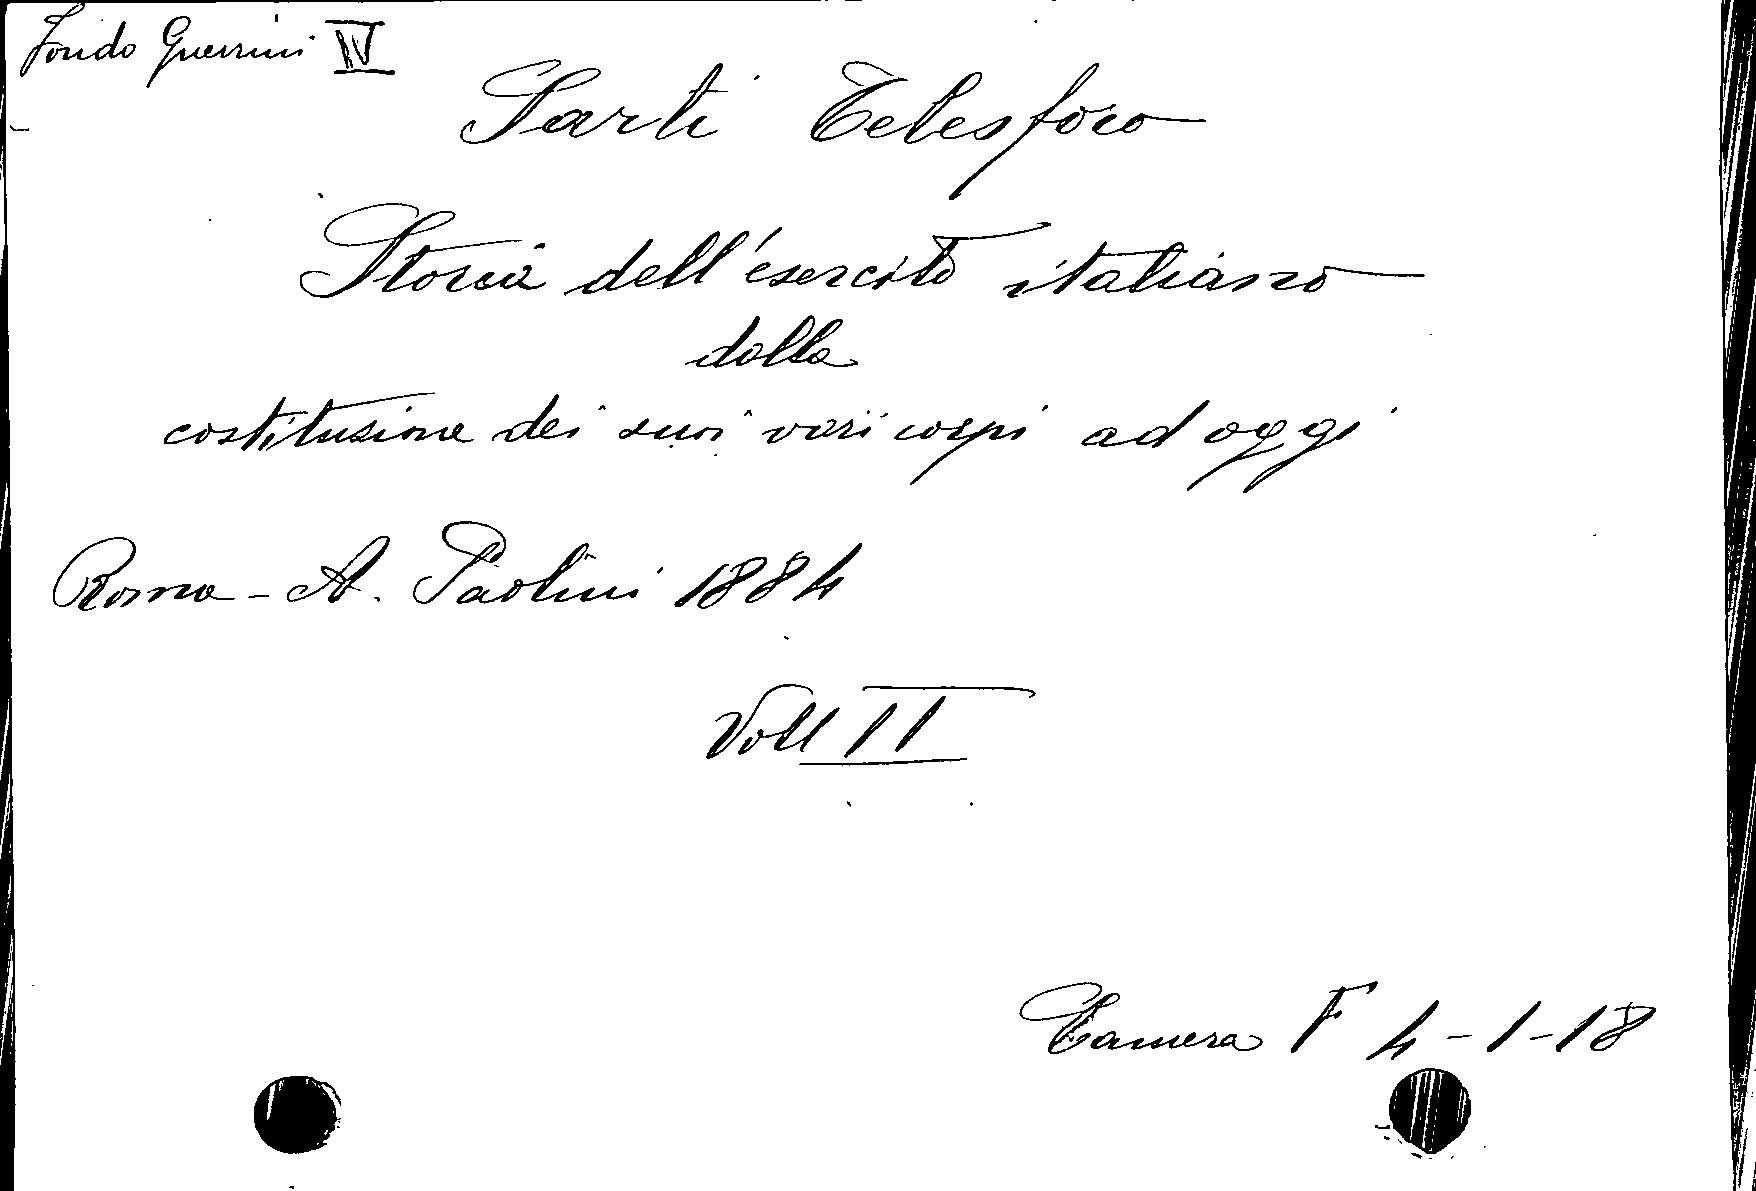 Fondo Guerrini IV
Sarti Telesforo
Storia dell'esercito italiano
dalla
costituzione dei suoi vari corpi ad oggi
Roma - A. Paolini 1884
Voll II
Camera F 4-1-18